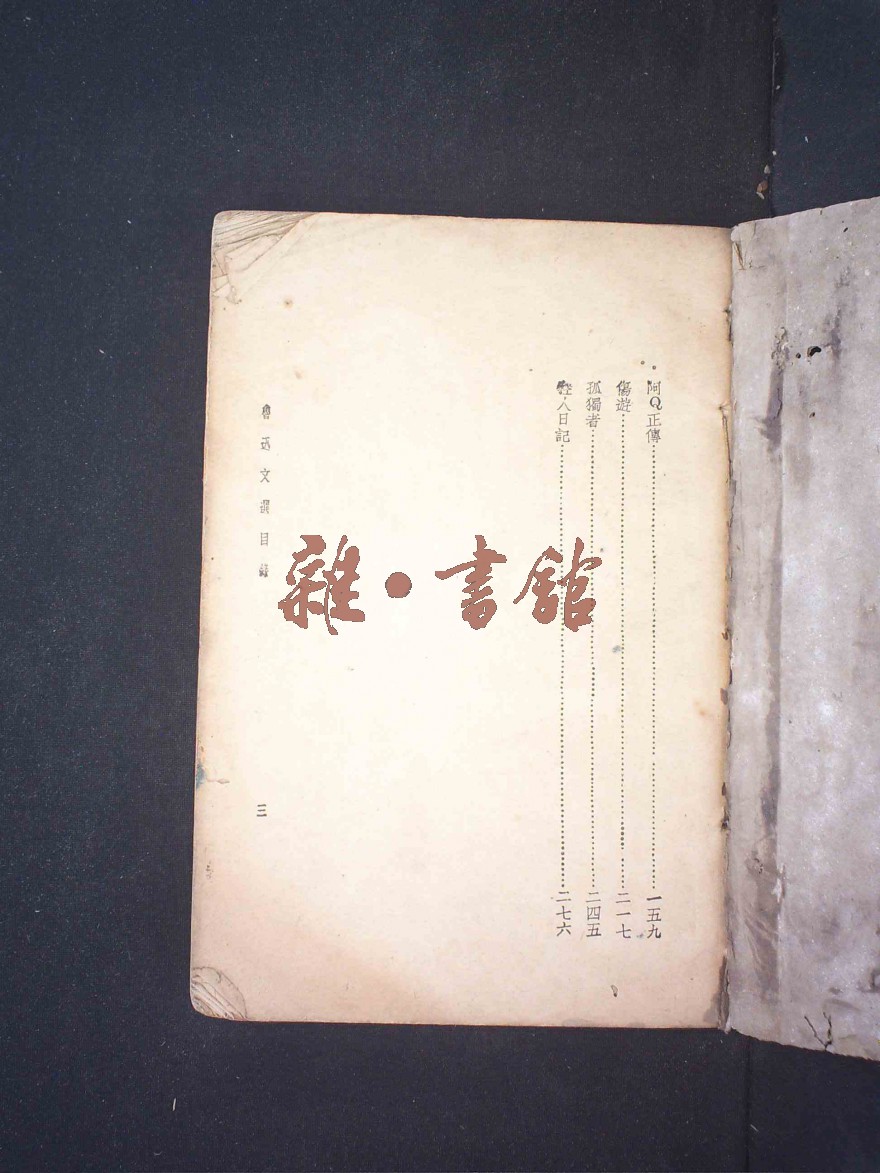 阿Q正傳……一五九
傷逝……二一七
孤獨者……二四五
狂人日記……二七六
魯迅文選目錄
三
雜·書館